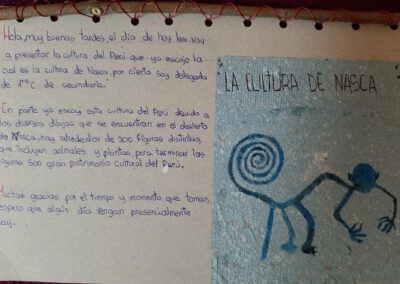 Hola, muy buenas tardes, el dia de hoy les voy
a presentar la cultura del Perú que yo escoje la
cual es la cultura de Nasca, por cierto soy delegada
de 1°C de secundaria.
En parte yo escogi esta cultura del Perú devido a
los diversos dibujos que se encuentran en el desierto
de Nasca, hay alrededor de 300 figuras distintas,
que incluyen animales y plantas, para terminar las
figuras son gran patrimonio cultural del Perú.
Muchas gracias por el tiempo y momento que toman,
espero que algún día vengan presencialmente
LA CULTURA DE NASCA